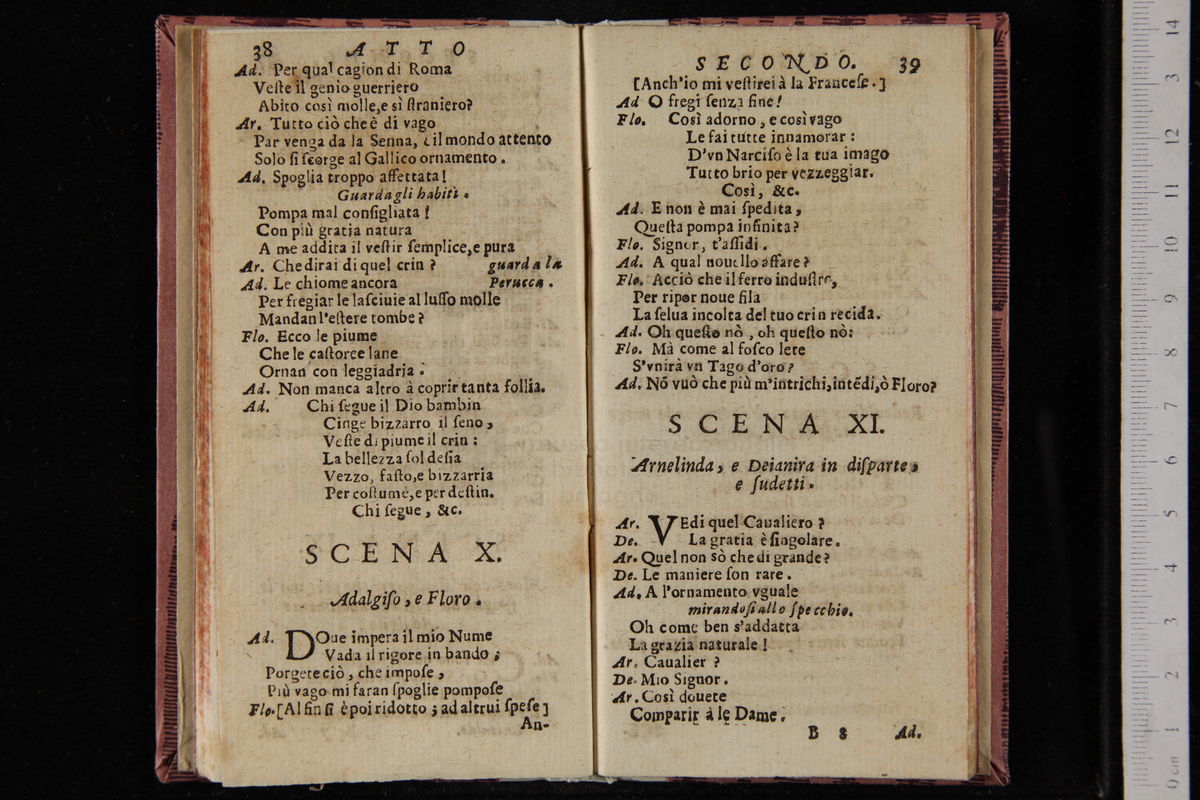 38 ATTO
Ad. Per qual cagion di Roma
Veſte il genio guerriero
Abito così molle,e sì ſtraniero?
Ar. Tutto ciò che è di vago
Par venga da la Senna, e il mondo attento
Solo ſi ſcorge al Gallico ornamento.
Ad. Spoglia troppo affettata!
Guarda gli habiti.
Pompa mal conſigliata!
Con più gratia natura
A me addita il veſtir ſemplice,e pura
Ar. Che dirai di quel crin? guarda la
Ad. Le chiome ancora Perucca.
Per fregiar le laſciuie al luſſo molle
Mandan l'eſtere tombe?
Flo. Ecco le piume
Che le caſtoree lane
Ornan con leggiadria.
Ad. Non manca altro à coprir tanta follia.
Ad. Chi ſegue il Dio bambin
Cinge bizzarro il ſeno,
Veſte di piume il crin:
La bellezza ſol deſia
Vezzo, faſto,e bizzarria
Per coſtume,e per deſtin.
Chi ſegue, &c.
SCENA X.
Adalgiſo, e Floro.
Ad. DOue impera il mio Nume
Vada il rigore in bando;
Porgete ciò, che impoſe,
Più vago mi faran ſpoglie pompoſe
Flo. [Al fin ſi è poi ridotto; ad altrui ſpeſe]
An-
SECONDO. 39
[Anch'io mi veſtirei à la Franceſe.]
Ad O fregi ſenza fine!
Flo. Così adorno, e così vago
Le fai tutte innamorar:
D'vn Narciſo è la tua imago
Tutto brio per vezzeggiar.
Così, &c.
Ad. E non è mai ſpedita,
Queſta pompa infinita?
Flo. Signor, t'aſſidi.
Ad. A qual nouello affare?
Flo. Acciò che il ferro induſtre,
Per ripor noue fila
La ſelua incolta del tuo crin recida.
Ad. Oh queſto nò, oh queſto nò:
Flo. Mà come al foſco lete
S'vnirà vn Tago d'oro?
Ad. Nõ vuò che più m'intrichi,intẽdi,ò Floro?
SCENA XI.
Arnelinda, e Deianira in diſparte,
e ſudetti.
Ar. VEdi quel Caualiero?
De. La gratia è ſingolare.
Ar. Quel non sò che di grande?
De. Le maniere ſon rare.
Ad. A l'ornamento vguale
mirandoſi allo ſpecchio.
Oh come ben s'addatta
La grazia naturale!
Ar. Caualier?
De. Mio Signor.
Ar. Così douete
Comparir à le Dame.
B 8 Ad.
14
13
12
11
10
9
8
7
6
5
4
3
2
1
0 cm